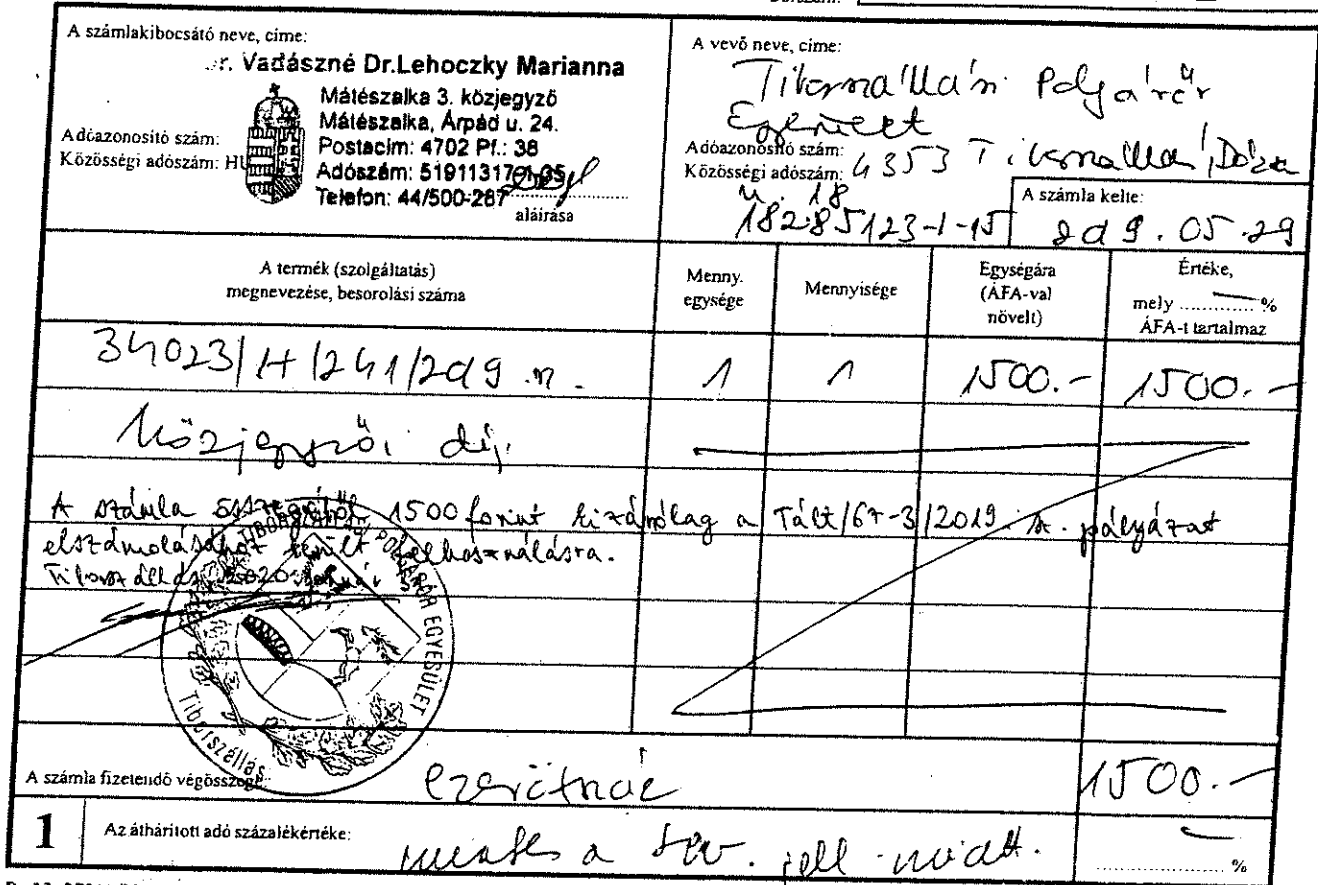 Sorszám:
A számlakibocsátó neve, címe:
r. Vadászné Dr.Lehoczky Marianna
Mátészalka 3. közjegyző
Mátészalka, Árpád u. 24.
Postacím: 4702 Pf.: 38
Adószám: 51911317
Telefon: 44/500-267
Adóazonosító szám:
Közösségi adószám: HU
aláírása
A vevő neve, címe:
Tiborszállási Polgárőr
Egyesület
Adóazonosító szám:
Közösségi adószám: 4353 Tiborszállás, Dózsa
u. 18
18285123-1-15
A számla kelte:
2019. 05. 29
A termék (szolgáltatás)
megnevezése, besorolási száma
Menny.
egysége
Mennyisége
Egységára
(ÁFA-val
növelt)
Értéke,
mely ............. %
ÁFA-t tartalmaz
34023/H/241/2019
1 1 1500.- 1500.-
Közjegyzői díj.
A számla összegéből 1500 forint kizárólag a 67-3/2019 sz. pályázat
elszámolásához került felhasználásra.
Tiborszállás, 2020
POLGÁRŐR EGYESÜLET
Tiborszállás
A számla fizetendő végösszege: ezerötszáz 1500.-
1 Az áthárított adó százalékértéke: mentes a miatt. ............. %